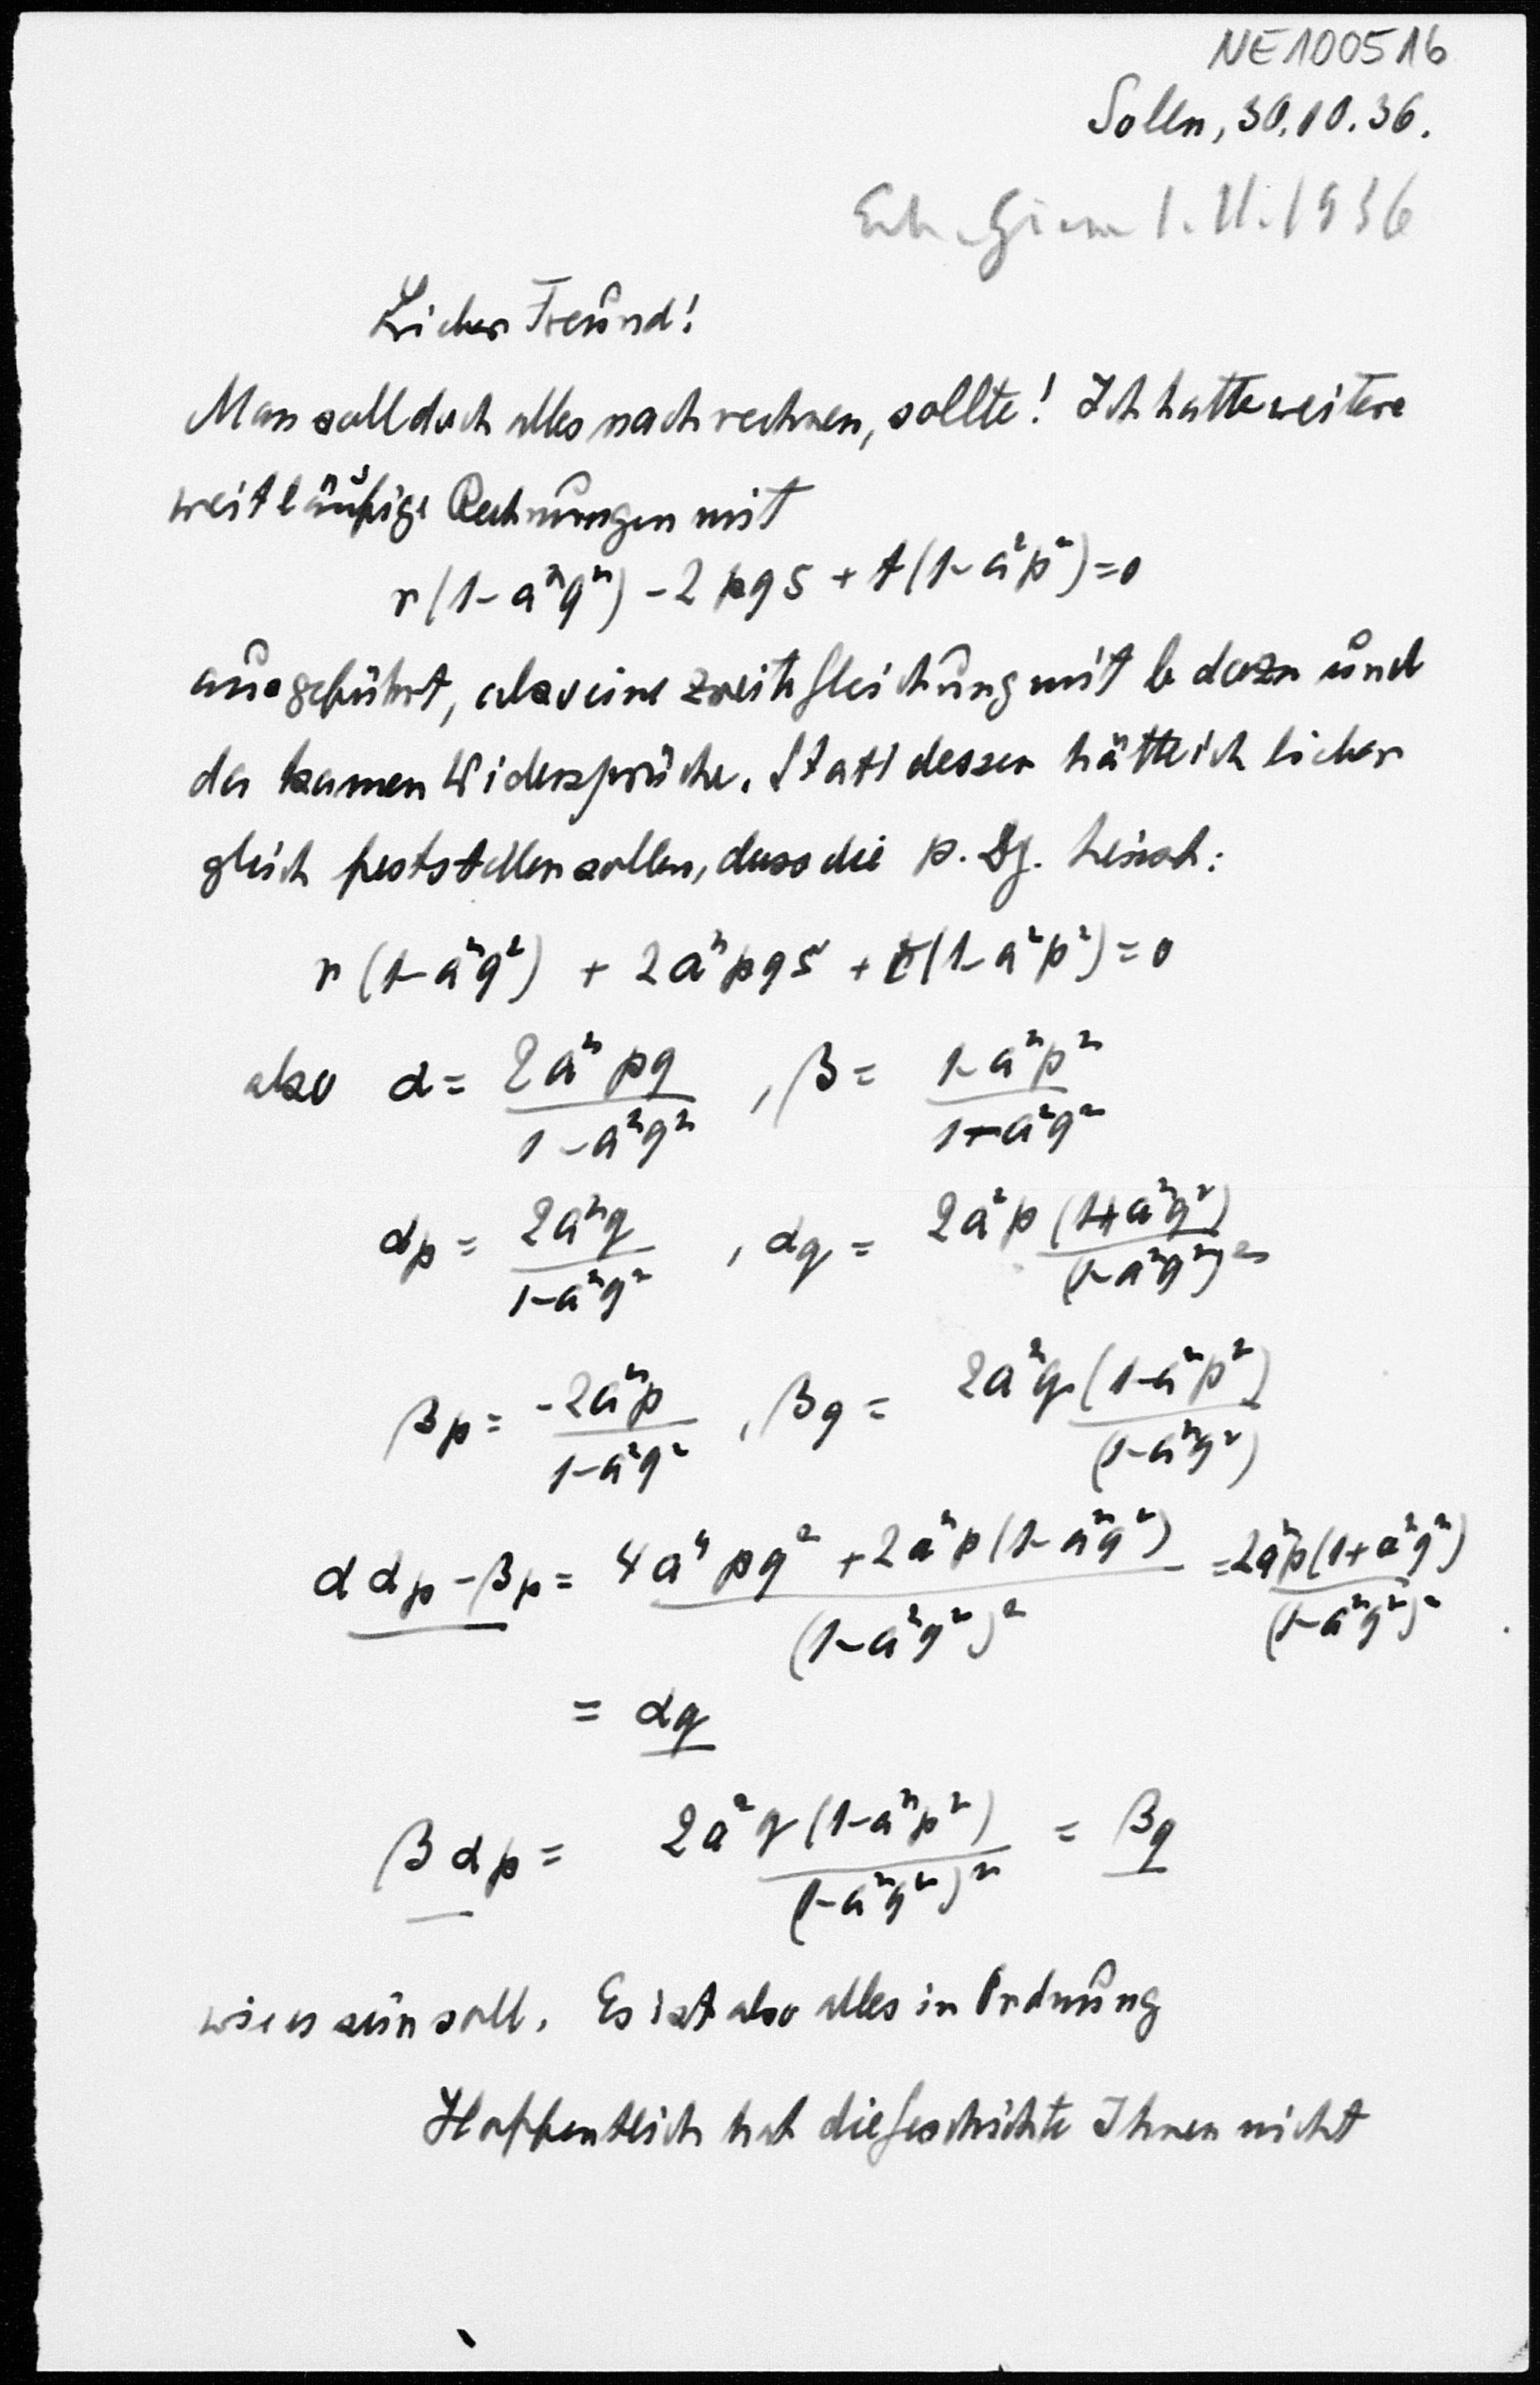 NE100516
Solln, 30.10.36.
1.11.1936
Lieber Freund!
Man soll doch alles nachrechnen, sollte! Ich hatte weitere
weitläufige Rechnungen mit
r(1-a²q²) - 2pqs + t(1-a²p²) = 0
ausgeführt, also eine zweite Gleichung mit b dazu und
da kamen Widersprüche. Statt dessen hätte ich lieber
gleich feststellen sollen, dass die p. Dg. heisst:
r(1-a²q²) + 2a²pqs + t(1-a²p²) = 0
also α = 2a²pq / (1-a²q²), β = (1-a²p²) / (1-a²q²)
αp = 2a²q / (1-a²q²), αq = 2a²p (1+a²q²) / (1-a²q²)²
βp = -2a²p / (1-a²q²), βq = 2a²q (1-a²p²) / (1-a²q²)
α αp - βp = (4a⁴pq² + 2a²p(1-a²q²)) / (1-a²q²)² = 2a²p(1+a²q²) / (1-a²q²)²
= αq
β αp = 2a²q (1-a²p²) / (1-a²q²)² = βq
wie es sein soll. Es ist also alles in Ordnung
Hoffentlich hat die Geschichte Ihnen nicht